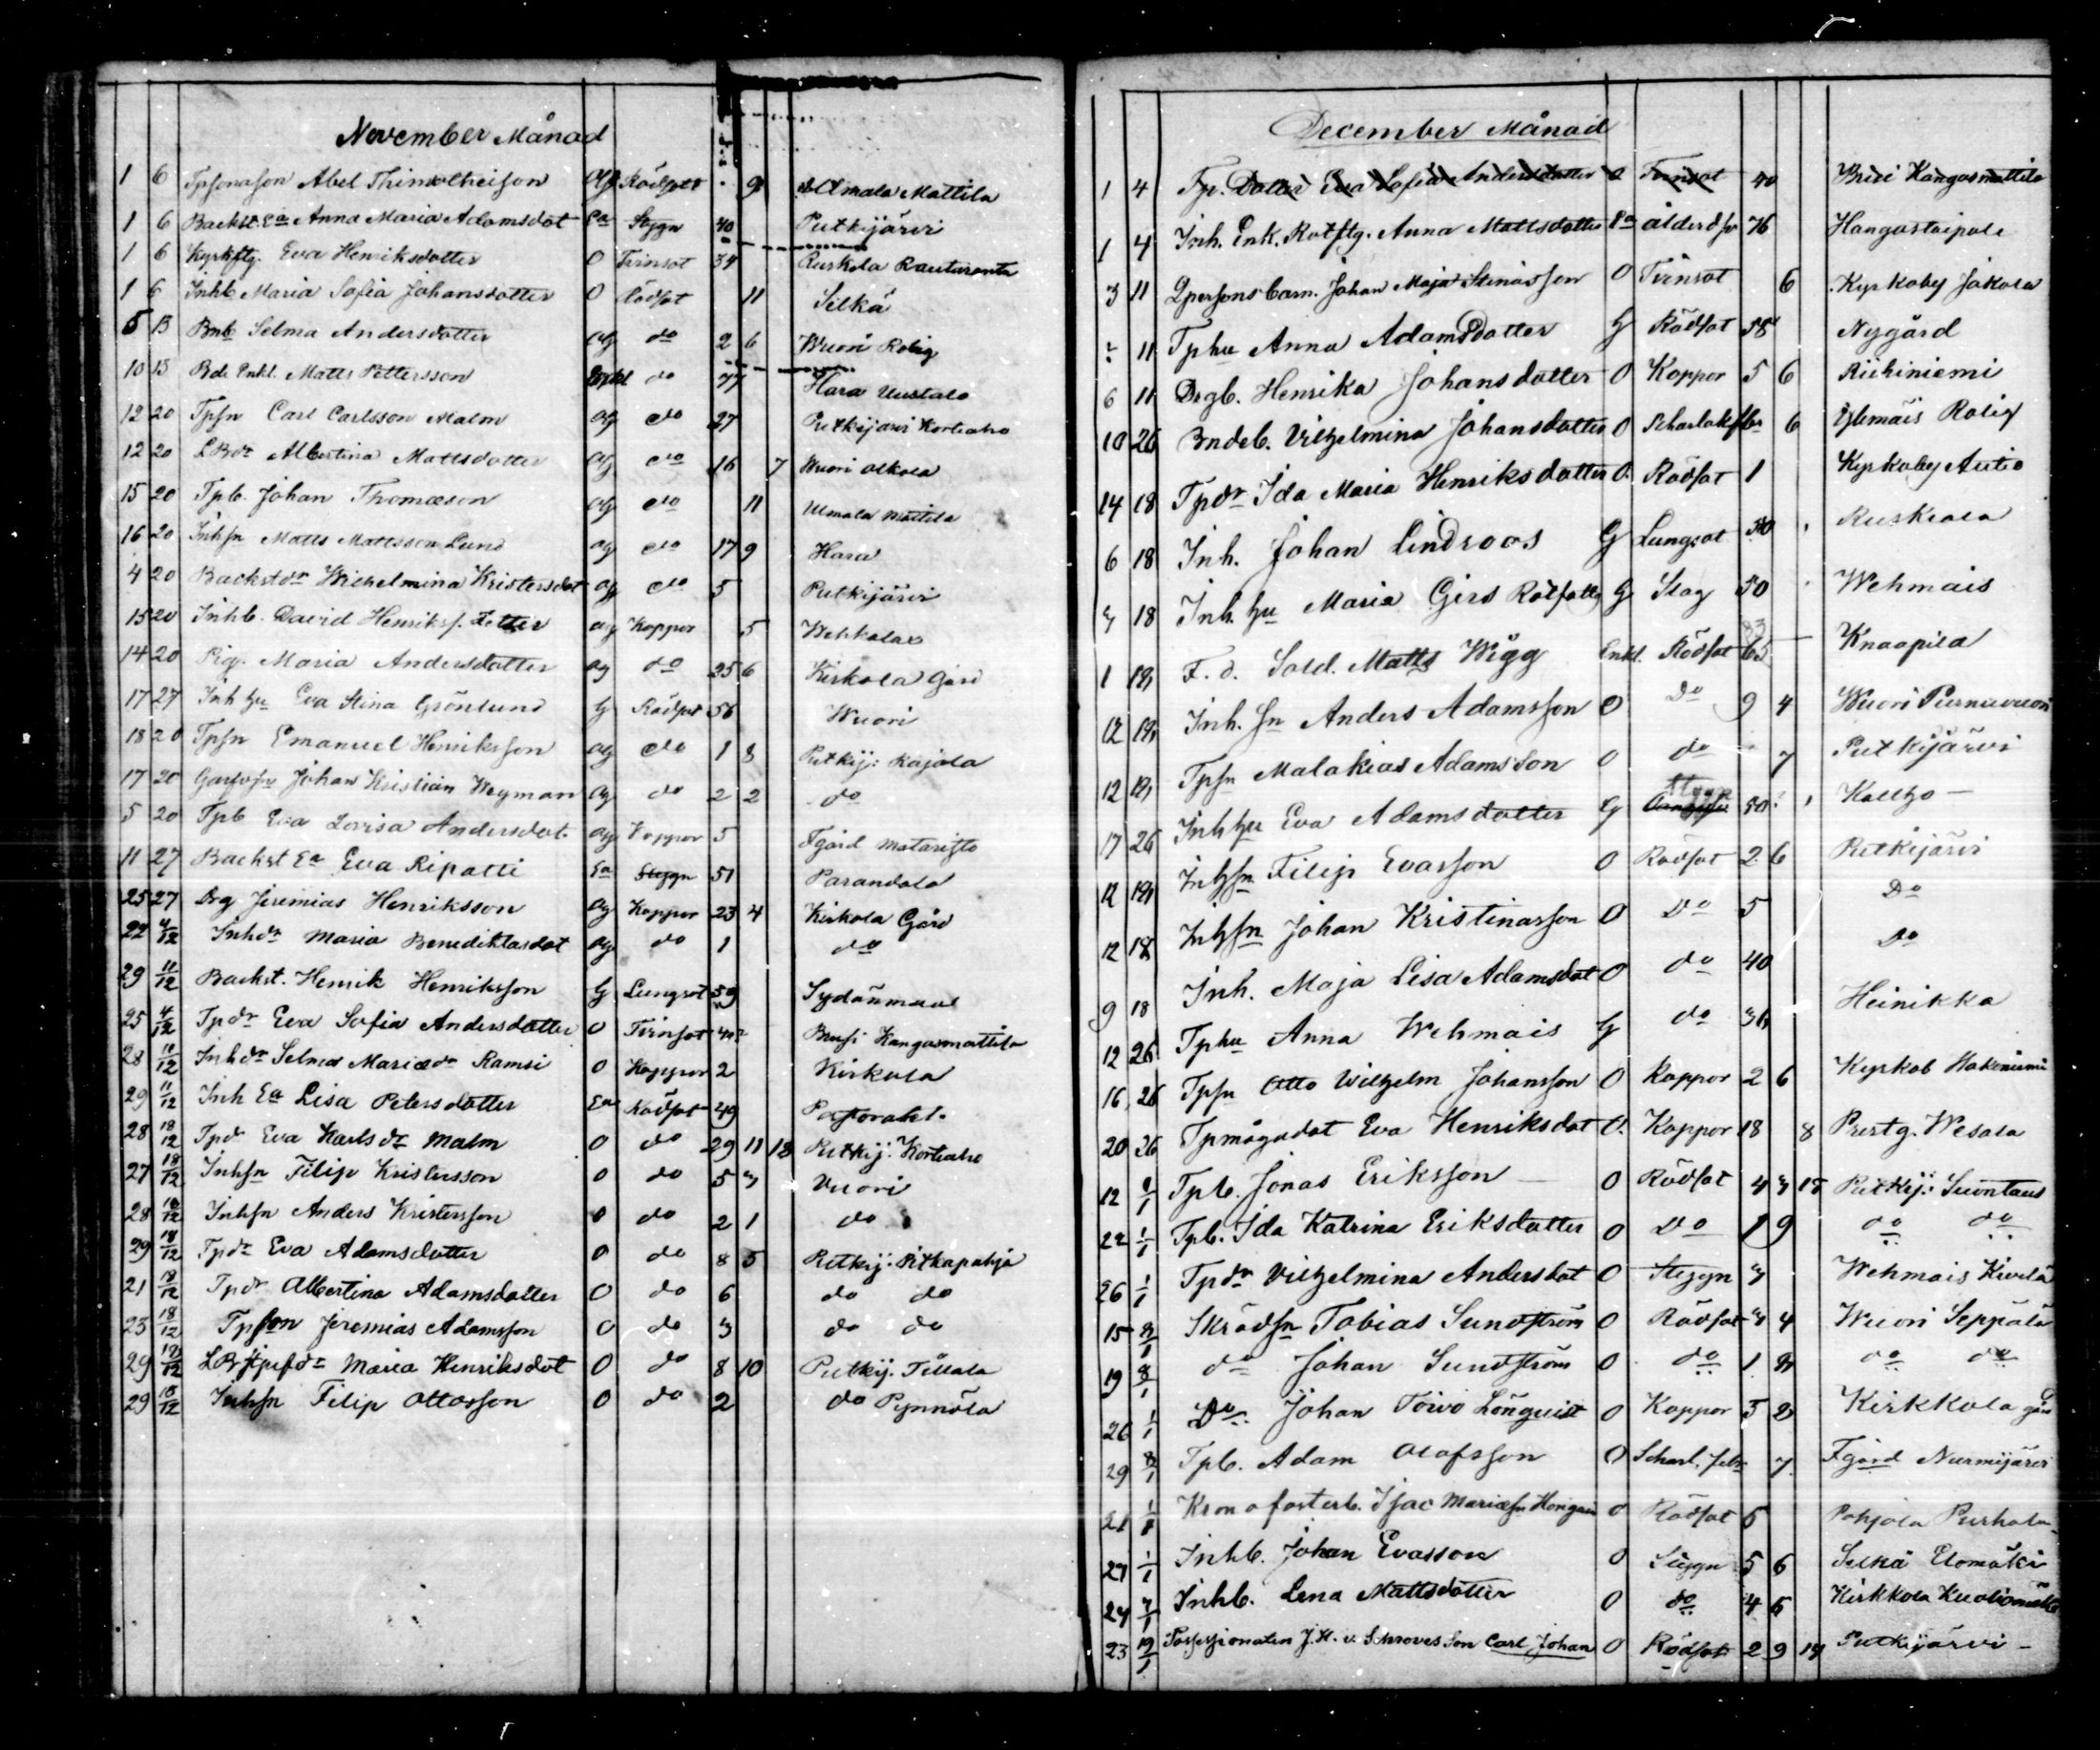 November Månad
1 6 Tpsonason Abel Thimotheison Og Rödsot 9 Ulmala Mattila
1 6 Backst. Ea Anna Maria Adamsdot Ea Stygn 40 Putkijärvi
1 6 Kyrkftg. Eva Henriksdotter O Tvinsot 34 Ruskola Rauturanta
1 6 Inhb Maria Sofia Johansdotter O Rödsot 11 Silkä
5 13 Bnb Selma Andersdotter og do 2 6 Wuori Rolig
10 13 Bde Enkl. Matts Pettersson Enkl do 77 Hara Uustalo
12 20 Tpsn Carl Carlsson Malm og do 27 Putkijärvi Korteaho
12 20 LBdr Albertina Mattsdotter og do 16 7 Wuori Alkola
15 20 Tpb. Johan Thomasson og do 11 Ulmala Mattila
16 20 Inhsn Matts Mattsson Lund og do 17 9 Hara
4 20 Backstdr Wilhelmina Kristersdot og do 5 Putkijärvi
15 20 Inhb. David Henrikss. Zetter og Koppor 5 Wehkalax
14 20 Pig. Maria Andersdotter og do 25 6 Kirkola Gård
17 27 Inh hu Eva Stina Grönlund G Rödsot 56 Wuori
18 20 Tpsn Emanuel Henriksson og do 1 8 Putkij: Kajola
17 20 Johan Kristian Wegman og do 2 2 do
5 20 Tpb Eva Lovisa Andersdot. og Koppor 5 Fgård Mataristo
11 27 Backst Ea Eva Ripatti Ea Stygn 51 Parandala
25 27 Drg Jeremias Henriksson og Koppor 23 4 Kirkola Gård
22 4/12 Inhdr Maria Benediktasdot og do 1 do
29 11/12 Backst. Henrik Henriksson G Lungsot 59 Sydänmaa
25 4/12 Tpdr Eva Sofia Andersdotter O Tvinsot 40 Kangasmattila
28 11/12 Inhdr Selma Mariædr Ramsi O Koppor 2 Kirkola
29 11/12 Inh Ea Lisa Petersdotter Ea Rödsot 49
28 18/12 Tpdr Eva Karlsdr Malm O do 29 11 18 Putkij: Korteaho
27 18/12 Inhsn Filip Kristersson O do 5 7 Vuori
28 18/12 Inhsn Anders Kristersson O do 2 1 do
29 18/12 Tpdr Eva Adamsdotter O do 8 5 Putkij: Pitkapohja
21 18/12 Tpdr Albertina Adamsdotter O do 6 do do
23 18/12 Tpson Jeremias Adamsson O do 3 do do
29 18/12 Maria Henriksdot O do 8 10 Putkij. Tillala
29 18/12 Inhsn Filip Ottosson O do 2 do Pynnölä
December Månad
1 4 Tp. Dotter Eva Sofia Andersdotter O Tvinsot 40 Kangasmattila
1 4 Inh. Enk. Rotftg. Anna Mattsdotter Ea ålderdsv 76 Hangastaipale
3 11 Qpersons barn. Johan Maja Stinasson O Tvinsot 6 Kyrkoby Jakola
11 Tphu Anna Adamsdotter G Rödsot 58 Nygård
6 11 Drgb. Henrika Johansdotter O Koppor 5 6 Riihiniemi
10 26 Bndeb. Vilhelmina Johansdotter O Scharlaksfbr 6 Rolig
14 18 Tpdr Ida Maria Henriksdotter O. Rödsot 1 Kyrkoby Autio
6 18 Inh. Johan Lindroos G Lungsot 50 Ruskiala
7 18 Inh. hu Maria Girs Rotfattig G Slag 50 Wehmais
1 18 F. d. Sold. Matts Wigg Enkl. Rödsot 65 83 Knaapila
12 18 Inh. sn Anders Adamsson O Do 9 4 Wuori Purnuvuori
12 18 Tpsn Malakias Adamsson O do 7 Putkijärvi
17 26 Inhhu Eva Adamsdotter G Stygn 50 Kaltzo
12 18 Inhsn Filip Evasson O Rödsot 2 6 Putkijärvi
12 18 Inhsn Johan Kristinasson O Do 5 Do
9 18 Inh. Maja Lisa Adamsdot O do 40 Do
12 26 Tphu Anna Wehmais G do 36 Heinikka
16 26 Tpsn Otto Wilhelm Johansson O Koppor 2 6 Kyrkob Hakeniemi
20 26 Tpmågsdot Eva Henriksdot O. Koppor 18 8 Prestg. Wesala
12 8/1 Tpb. Jonas Eriksson O Rödsot 4 7 15 Putkij: Suontaus
22 1/1 Tpb. Ida Katrina Eriksdotter O Do 1 9 do do
26 1/1 Tpdr Vilhelmina Andersdot O Stygn 7 Wehmais Kivelä
15 8/1 Skrädsn Tobias Sundström O Rödsot 7 4 Wuori Seppälä
19 8/1 do Johan Sundström O do 1 8 do do
26 1/1 Do Johan Toivo Lönquist O Koppor 3 8 Kirkkola gård
29 8/1 Tpb. Adam Olofsson O Scharl. febr 7 Fgård Nurmijärvi
21 1/1 Krono fosterb. Isac Mariæsn O Rödsot 5 Pohjola Purhola
27 1/1 Inhb. Johan Evasson O Stygn 5 6 Silkä Elomäki
27 7/1 Inhb. Lena Mattsdotter O do 4 5 Kirkkola
23 19/1 Possessionaten J. H. v. Schroves Son Carl Johan O Rödsot 2 9 14 Putkijärvi